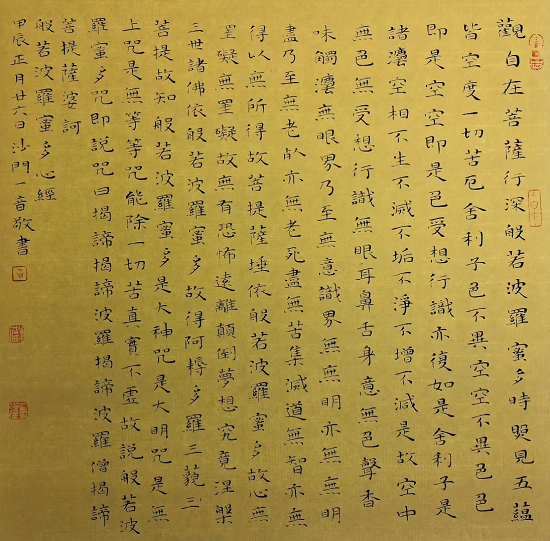 觀自在菩薩行深般若波羅蜜多時照見五蘊
皆空度一切苦厄舍利子色不異空空不異色色
即是空空即是色受想行識亦復如是舍利子是
諸灋空相不生不滅不垢不淨不增不減是故空中
無色無受想行識無眼耳鼻舌身意無色聲香
味觸灋無眼界乃至無意識界無無明亦無無明
盡乃至無老死亦無老死盡無苦集滅道無智亦無
得以無所得故菩提薩埵依般若波羅蜜多故心無
罣礙無罣礙故無有恐怖遠離顛倒夢想究竟涅槃
三世諸佛依般若波羅蜜多故得阿耨多羅三藐三
菩提故知般若波羅蜜多是大神咒是大明咒是無
上咒是無等等咒能除一切苦真實不虛故說般若波
羅蜜多咒即說咒曰揭諦揭諦波羅揭諦波羅僧揭諦
菩提薩婆訶
般若波羅蜜多心經
甲辰正月廿六日沙門一音敬書